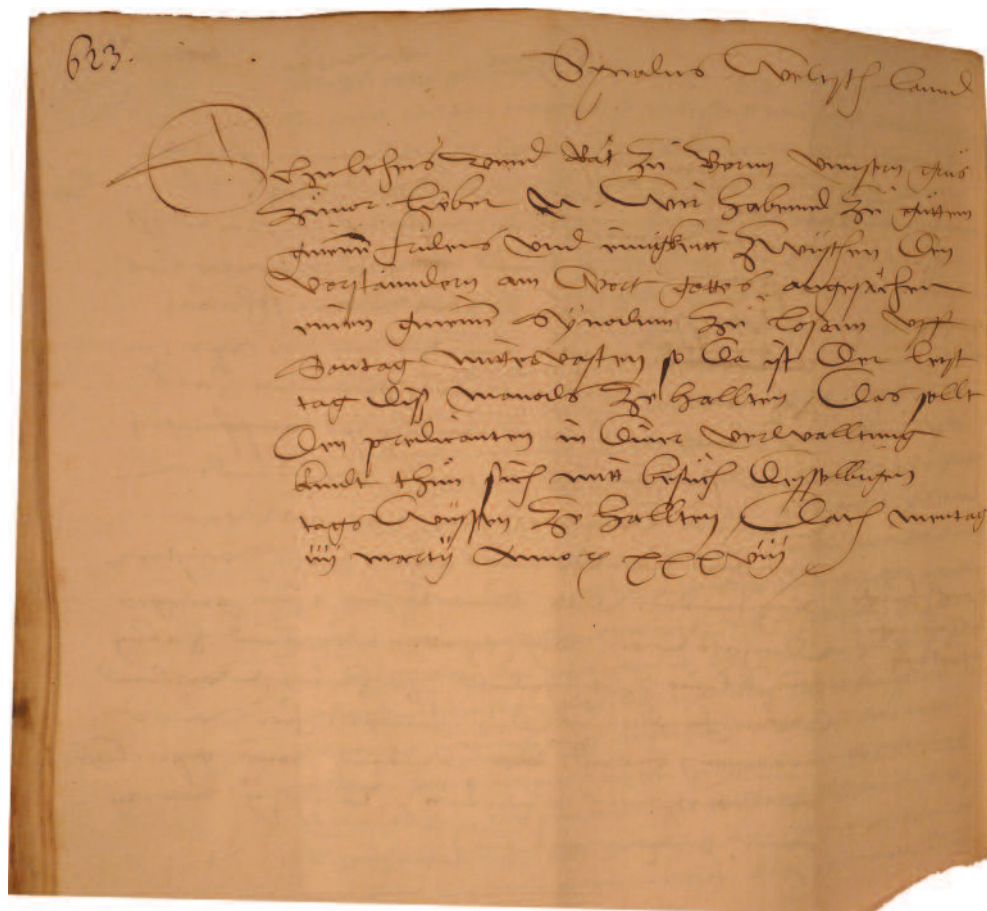 623.
Synodus Weltsch lannd
Schulthes unnd Rat zu Bernn unnsern grus
zuvor lieber N. Wir habennd zu gutem
gmeines fridens und einigkeit zwuschen den
vorständern am Wort gottes angesächen
einen gmeinen Synodum zu Losann uff
Sontag mittervasten so da ist der letst
tag diss manods ze hallten Das sollt
den predicanten in diner verwalltung
kundt thun sich mitt besuch desselbigen
tags wussen ze hallten Dat mentag
iiij martij Anno XXXviij